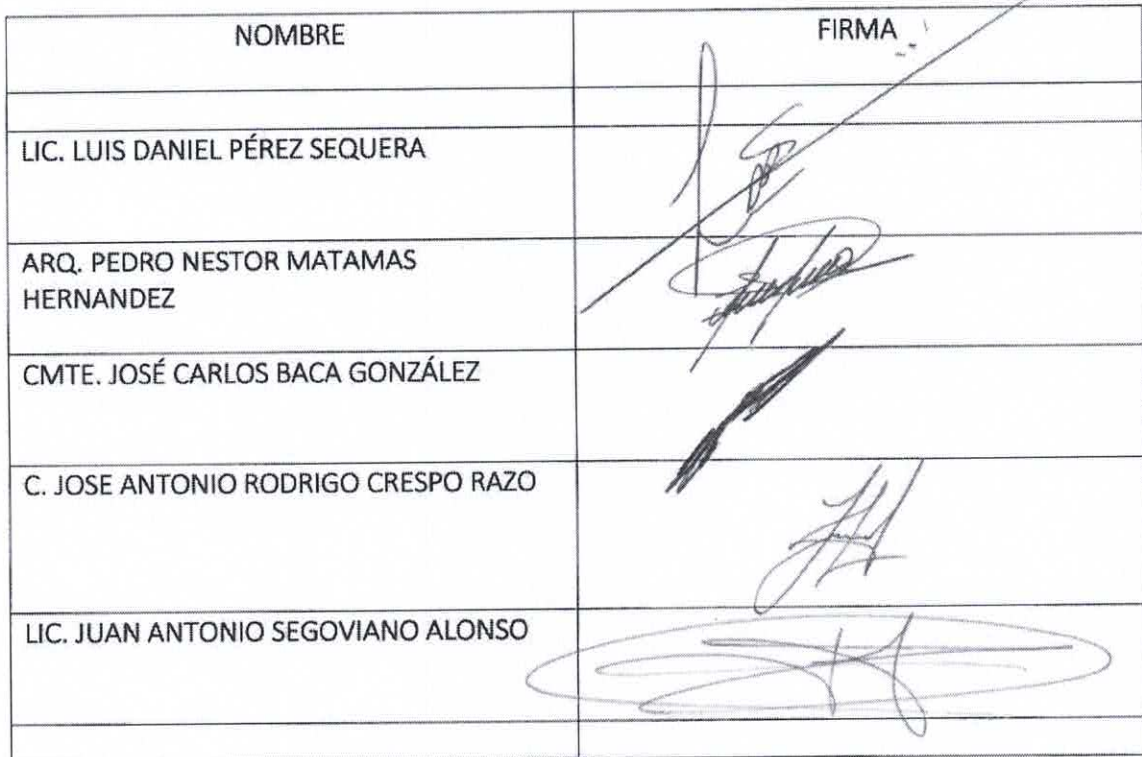 NOMBRE FIRMA
LIC. LUIS DANIEL PÉREZ SEQUERA
ARQ. PEDRO NESTOR MATAMAS
HERNANDEZ
CMTE. JOSÉ CARLOS BACA GONZÁLEZ
C. JOSE ANTONIO RODRIGO CRESPO RAZO
LIC. JUAN ANTONIO SEGOVIANO ALONSO